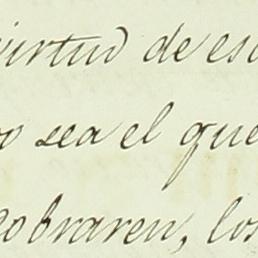 virtud de es
o sea el que
cobraren, los